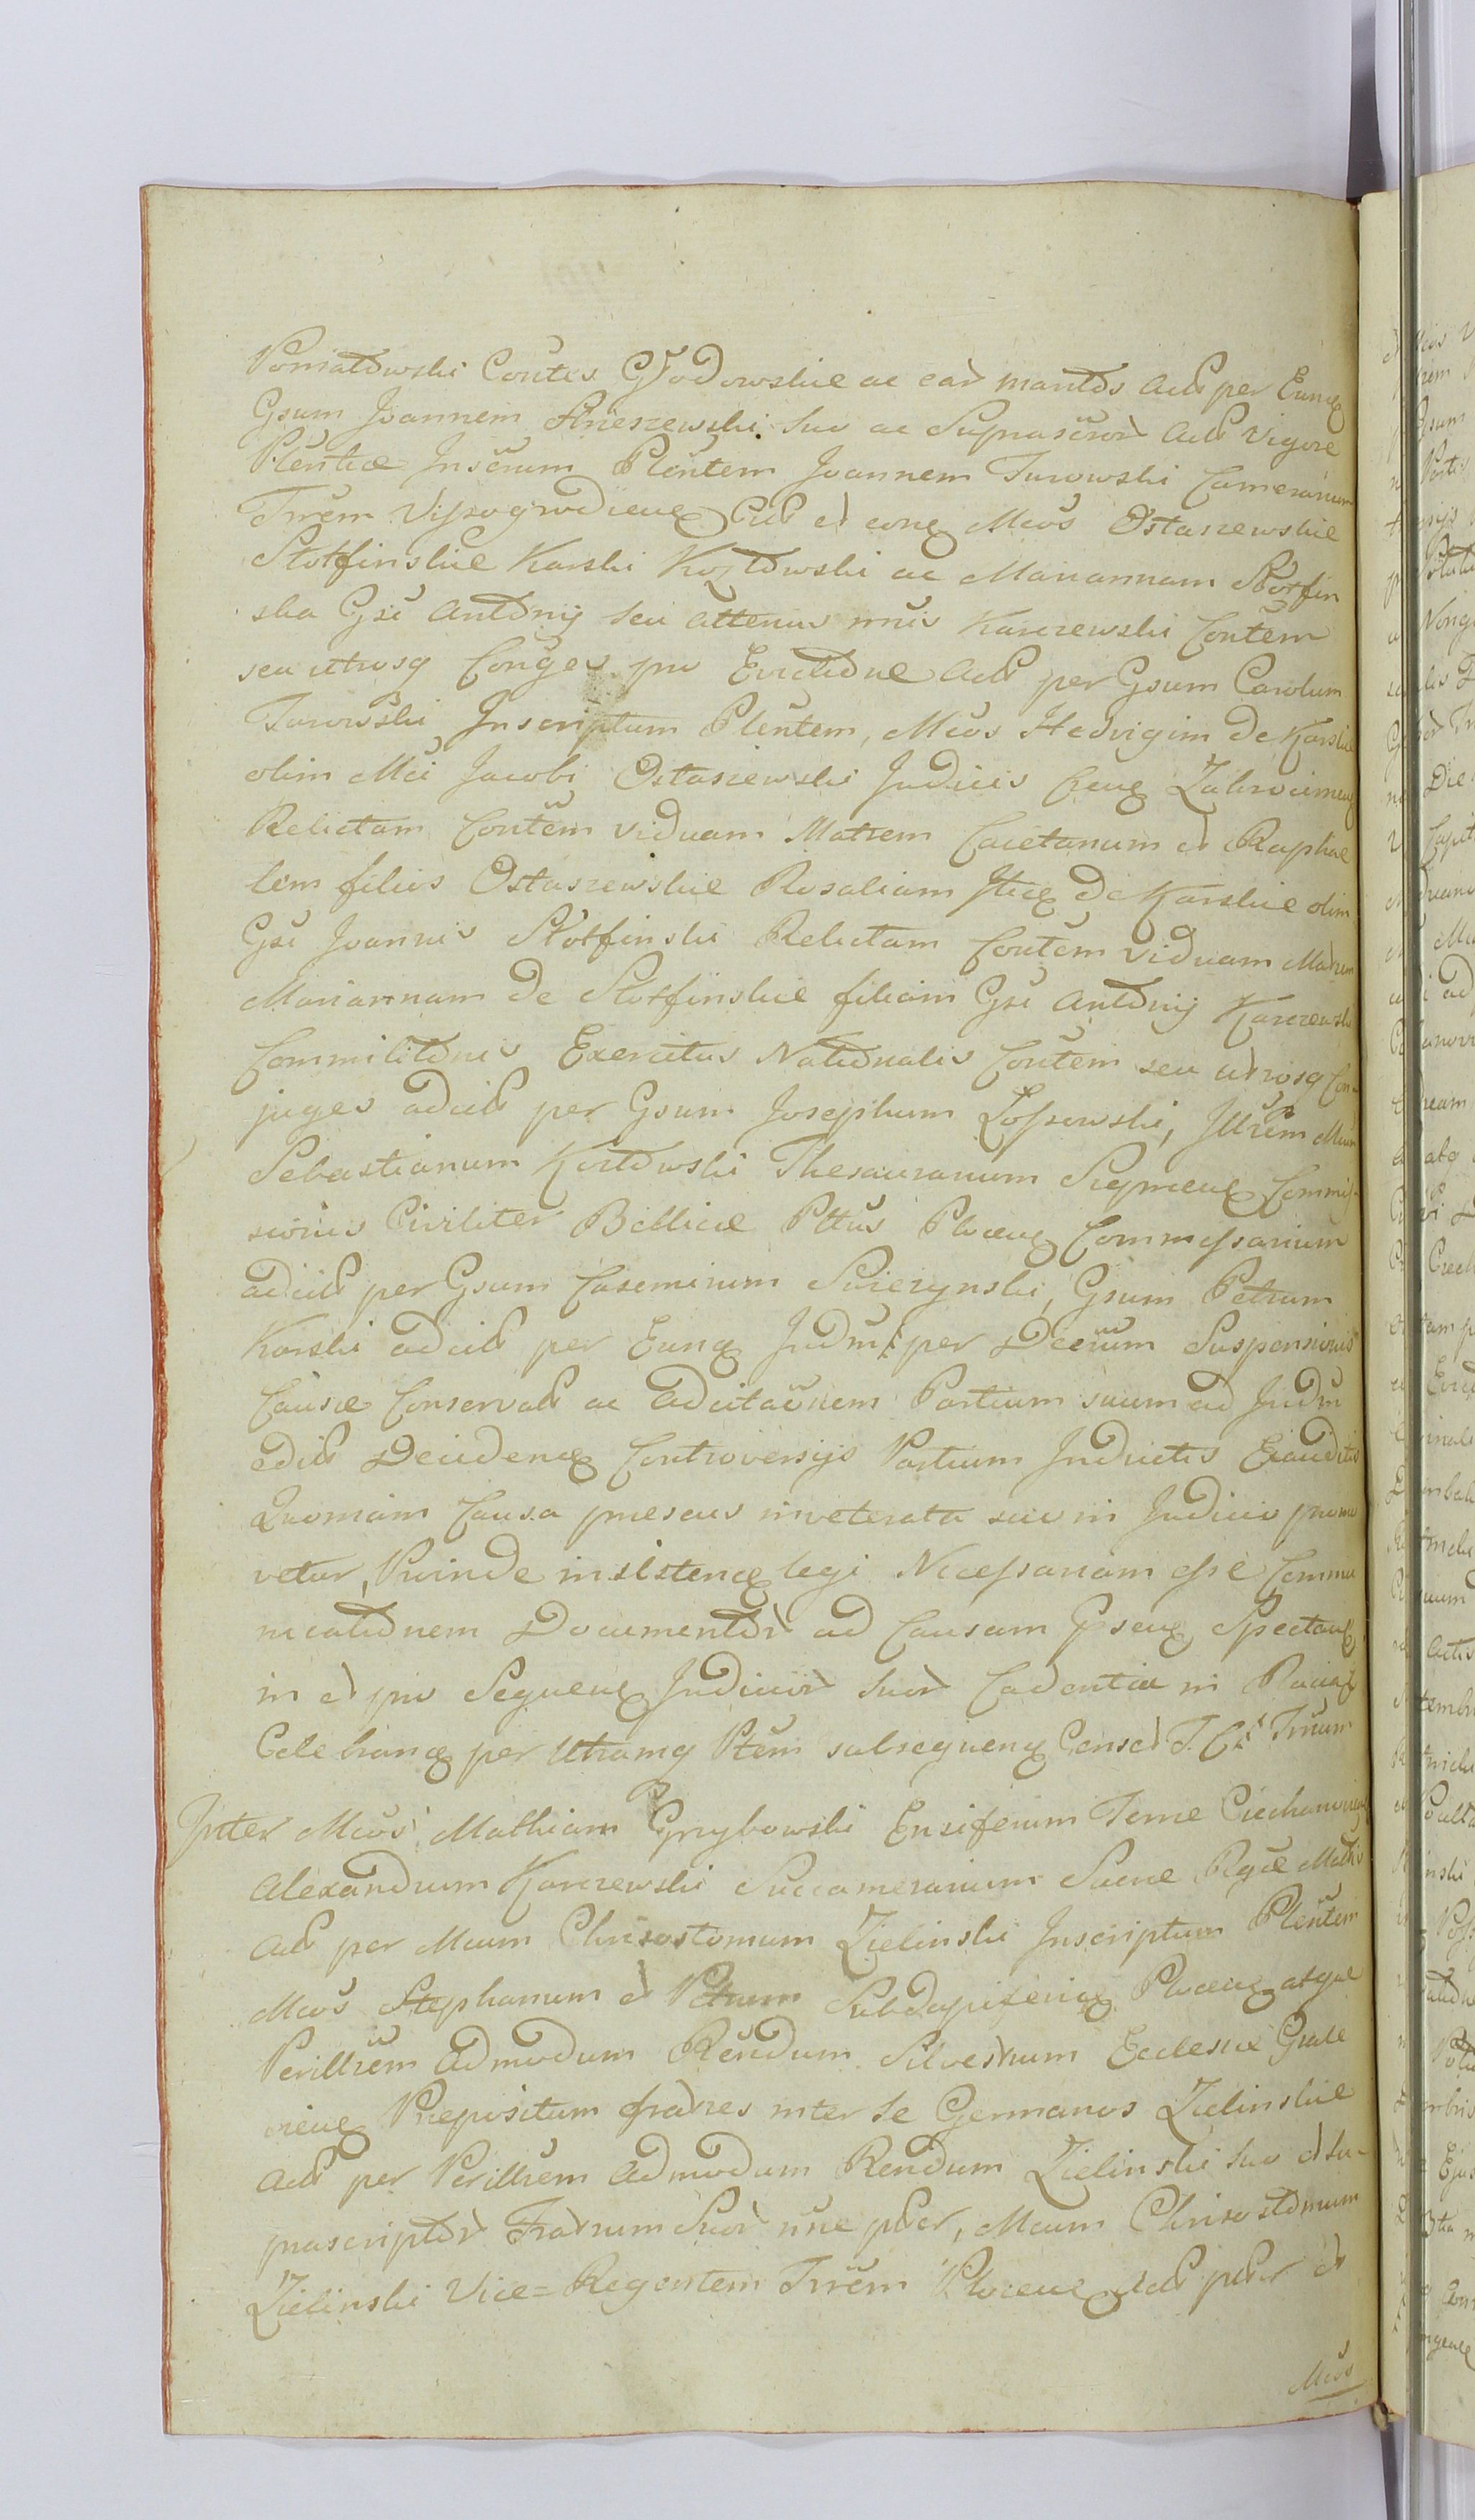 Poniatowski Contes Głodowskie ac ear maritos Act per Eund
Gsum Joannem Smeszewski suo ac Suprascror Act Vigore
Plentiae Inscrum Plentem Joannem Turowski Camerarium
Trrem Vyszogrodiens Citt et eorg Mcos Ostaszewskie
Słotfinskie Karski Kozłowski ac Mariannam Słotfin
ska Gsi Antonij seu attenus nris Karczewski Contem
seu utrosq Conges pro Evictione Act per Gsum Carolum
Turowski Inscriptum Plentem, Mcos Hedvigim de Karskie
olim Mci Jacobi Ostaszewski Judicis Cens Zakrocimens
Relictam Contem viduam Matrem Caietanum et Raphae
lem filios Ostaszewskie Rosaliam Itid de Karskie olim
Gsi Joannis Słotfinski Relictam Contem viduam Matrem
Mariannam de Słotfinskie filiam Gsi Antonij Karczewski
Commilitonis Exercitus Nationalis Contem seu utrosq Con-
juges adcitt per Gsum Josephum Łossowski, Illrem Mcum
Sebastianum Kozłowski Thesaurarium Sieprcens Commis-
sionis Civiliter Bellicae Pttus Plocens Commissarium
adcitt per Gsum Casemirum Swierzynski, Gsum Petrum
Karski adcitt per Eund Judm per Decrum Suspensionis
Causae Conservatt ac adcitaonem Partium suum ad Judm
edit Decidend Controversijs Partium Inductis Exauditis
Quoniam Causa presens inveterata sui in Judicio promo
vetur, Proinde insistend legi Necessariam esse Commu
nicationem Documentor ad Causam Psens Spectans
in et pro Sequens Judicior suor Cadentia in Raciąż
Celebrand per Utramq Ptem subsequend Censet T. C. Trium
Inter Mcos Mathiam Grzybowski Ensiferum Terrae Ciechanoviens
Alexandrum Karczewski Succamerarium Sacrae Rgiae Mattis
Act per Mcum Chrisostomum Zielinski Inscriptum Plentem
Mcos Stephanum et Petrum Subdapiferid Plocens atque
Perillrem Admodum Rendum Silvestrum Ecclesiae Grale
viens Praepositum fratres inter se Germanos Zielinskie
Act per Perillrem Admodum Rendum Zielinski suo et su-
prascriptor Fratrum Suor nne pścr, Mcum Chrisostomum
Zielinski Vice=Regentem Trrem Plocens Act pścr et
Mcos